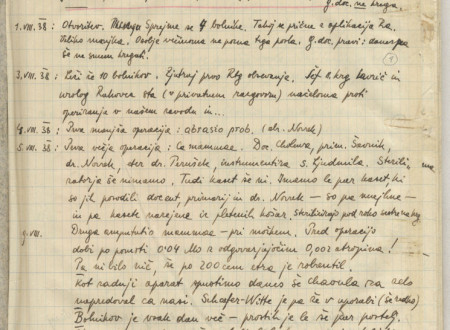 g. doc. ne kruga.
1. VIII. 38 : Otvoritev. Sprejme se 4 bolnike. Takoj se prične z aplikacijo Ra.
Veliko manjka. Osobje večinoma ne pozna tega posla. G. doc. pravi: danes pa
še ne smem kregati.
3. VIII. 38 : Leži že 10 bolnikov. Zjutraj prvo Rtg obsevanje. Šef II. kirg. Lavrič in
urolog Ravovec sta (v privatnem razgovoru) načeloma proti
operiranju v našem zavodu in...
4. VIII. 38 : Prva manjša operacija : abrasio prob. (dr. Novak)
5. VIII. 38 : Prva večja operacija : Ca mammae. Doc. Cholewa, prim. Šavnik,
dr. Novak, ter dr. Perušek, instrumentira s. Ljudmila. Sterili-
zatorja še nimamo. Tudi kaset še ni. Imamo le par kaset, ki
so jih posodili docent, primarij in dr. Novak — so pa majhne —
in pa kasete narejene iz pletenih košar. Steriliziramo pod roko
9. VIII. Druga amputatio mammae - pri moškem. Pred operacijo
dobi po pomoti 0.04 Mo z odgovarjajočim 0,002 atropina!
Pa ni bilo nič, še po 200 ccm etra je robantil.
Kot zadnji aparat spustimo danes še chaoula za zelo
napredoval ca nosi. Schaefer-Witte je pa že v uporabi
Bolnikov je vsak dan več — prostih je le še par postelj.